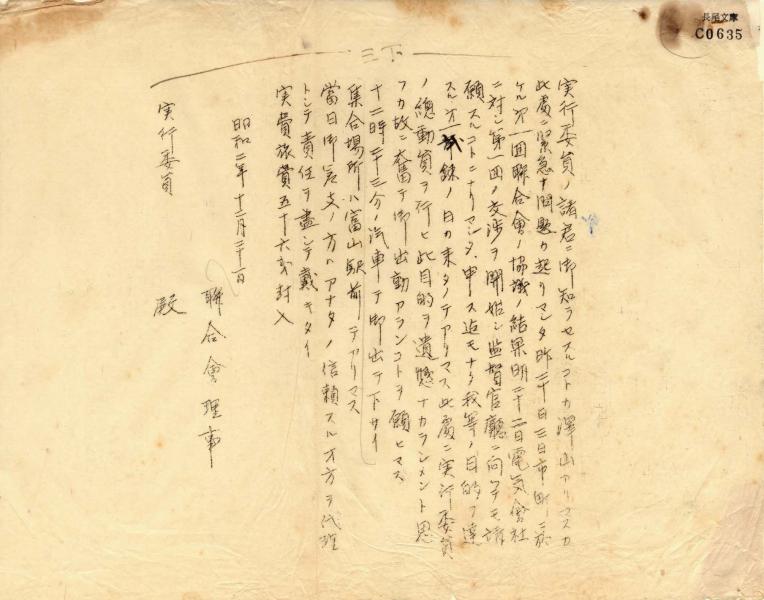 長尾文庫
C0635
三下
実行委員ノ諸君ニ御知ラセスルコトカ澤山アリマスカ
此處ニ緊急ナ問題カ起リマシタ昨二十日三日市町ニ於
ケル第一回聯合會ノ協議ノ結果明二十二日電気會社
ニ対シ第一回ノ交渉ヲ開始シ監督官廳ニ向ツテモ請
願スルコトニナリマシタ、申ス迄モナク我等ノ目的ヲ達
スル第一試錬ノ日カ来タノテアリマス此處ニ実行委員
ノ總動員ヲ行ヒ此目的ヲ遺憾ナカランメント思
フカ故ニ奮テ御出動アランコトヲ願ヒマス
十二時二十三分ノ汽車テ御出テ下サイ
集合場所ハ富山駅前テアリマス
當日御差支ノ方ハアナタノ信頼スル方ヲ代理
トシテ責任ヲ盡シテ戴キタイ
実費旅費五十六銭封入
昭和二年十二月二十一日
聯合會理事
実行委員
殿